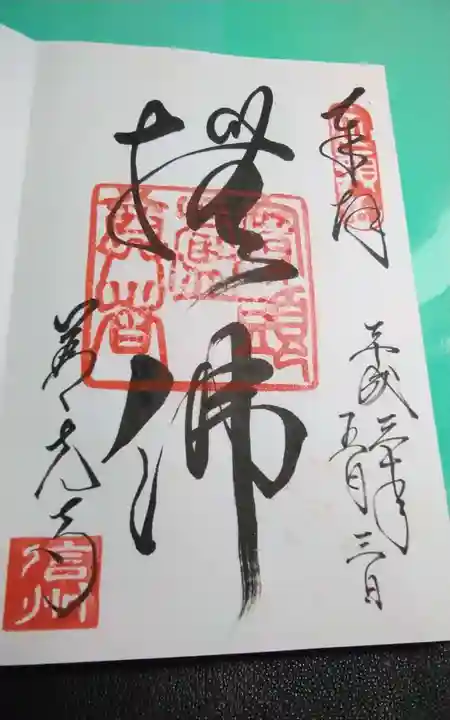 奉拝
平成三十年
五月三日
撫佛
善光寺
信州